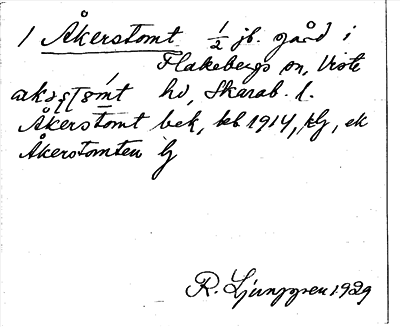 1 Åkerstomt 1/2 jb. gård i
Flakebergs sn, Viste
hd, Skarab. l.
Åkerstomt bek, kb 1914, dlj, ek
Åkerstomten lj
R. Ljunggren 1929